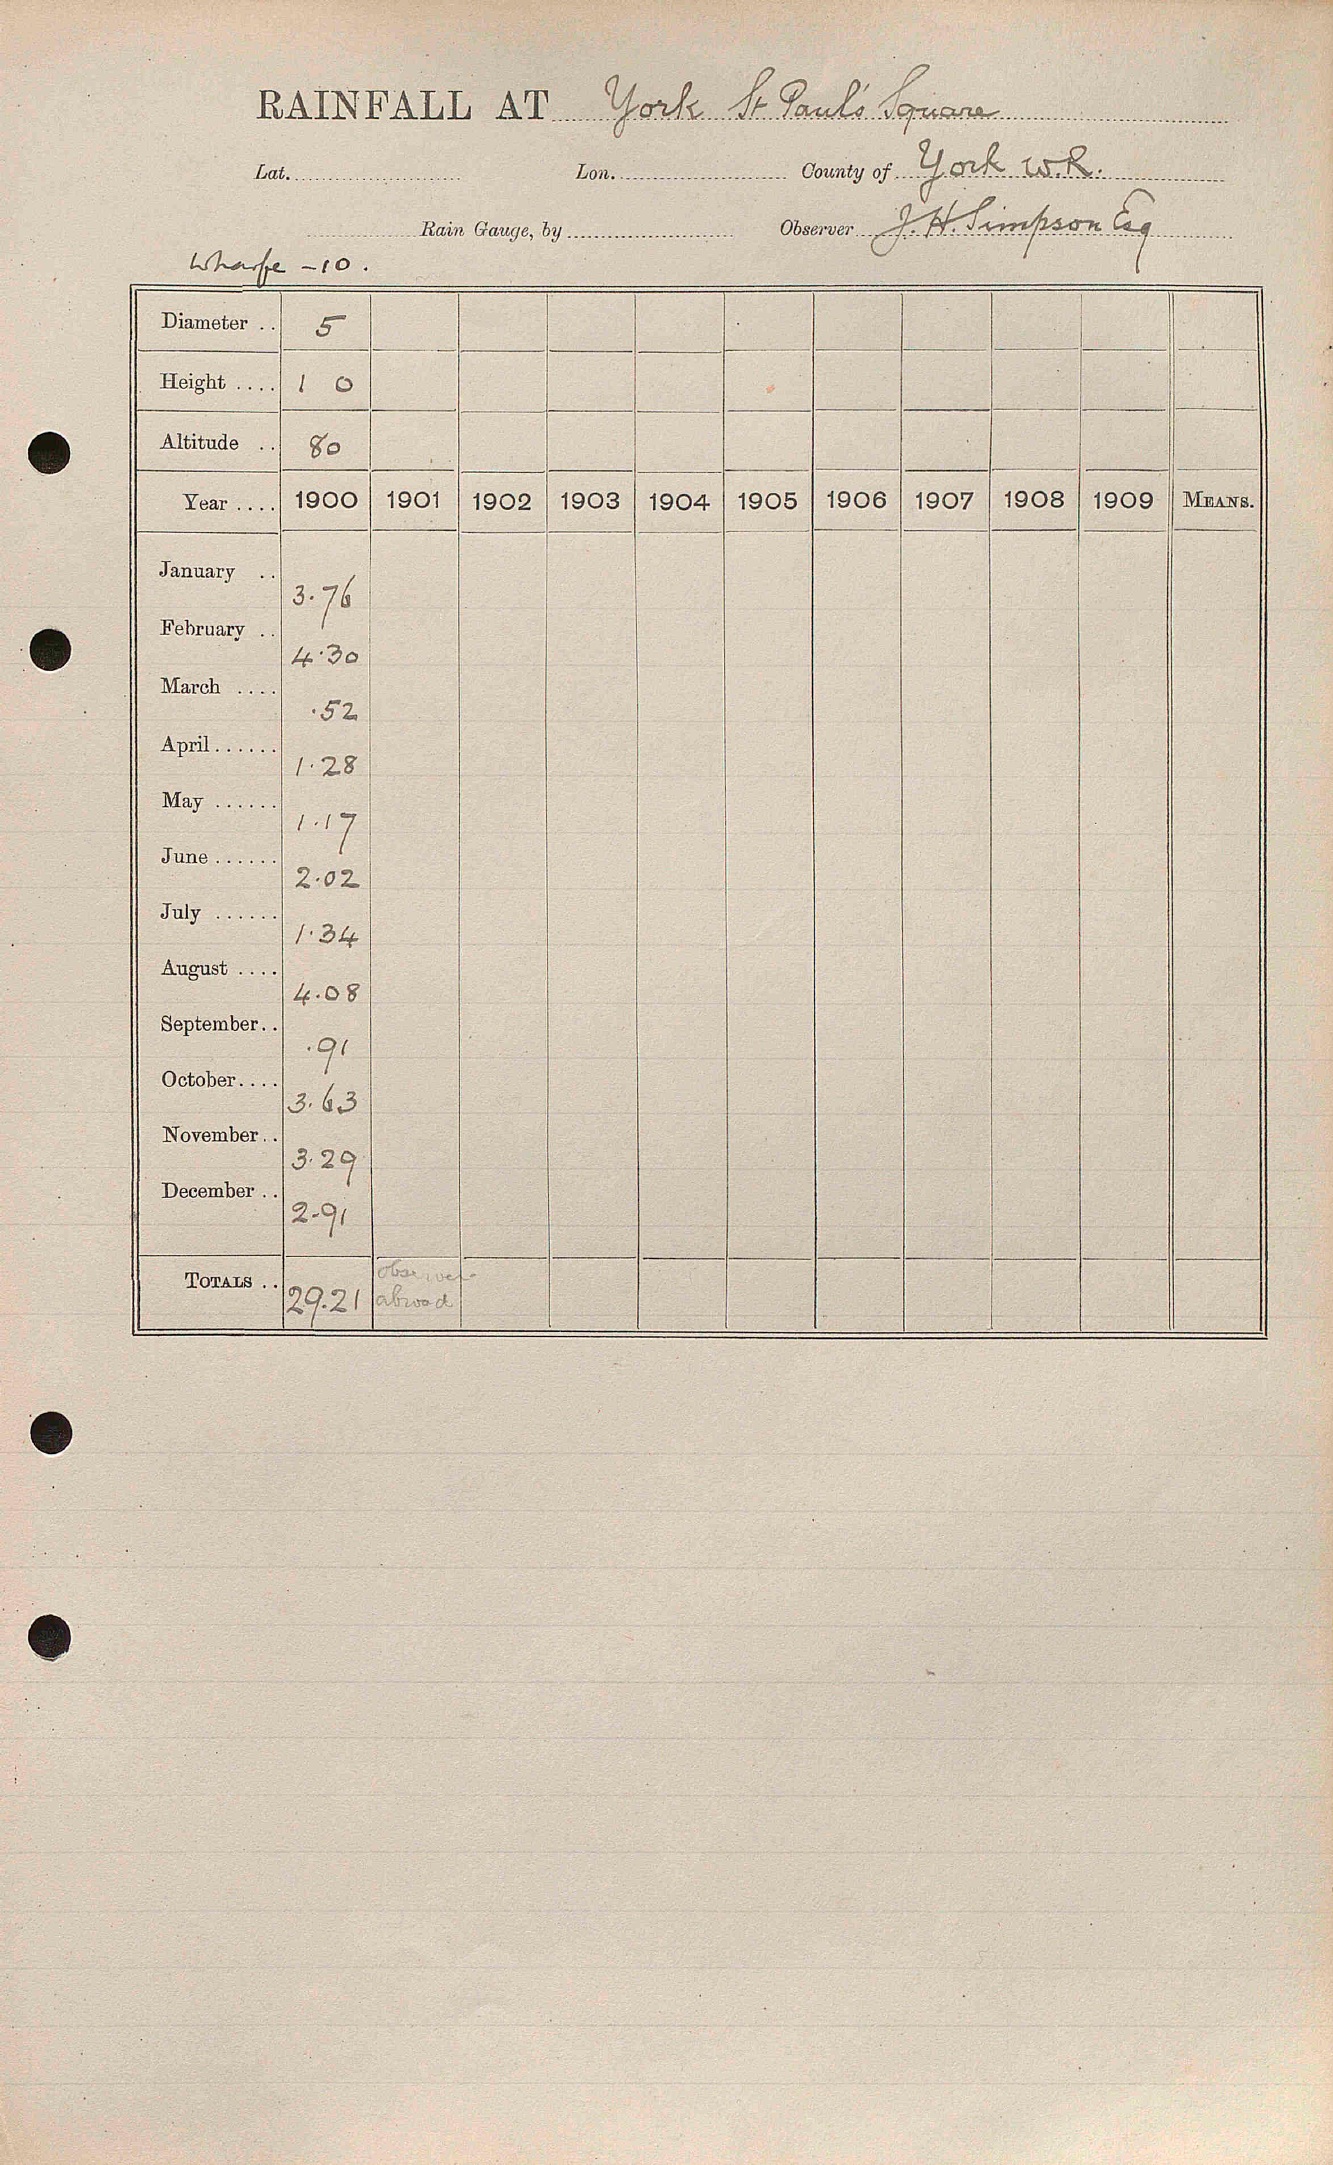 RAINFALL AT York St Paul's Square
Lat. Lon. County of York W.R.
Rain Gauge, by Observer J. H. Simpson Esq
Wharfe - 10.
Diameter .. 5
Height .... 1 0
Altitude .. 80
Year .... 1900 1901 1902 1903 1904 1905 1906 1907 1908 1909 MEANS.
January .. 3.76
February .. 4.30
March .... .52
April ...... 1.28
May ...... 1.17
June ...... 2.02
July ...... 1.34
August .... 4.08
September .. .91
October .... 3.63
November .. 3.29
December .. 2.91
TOTALS .. 29.21 observer
abroad